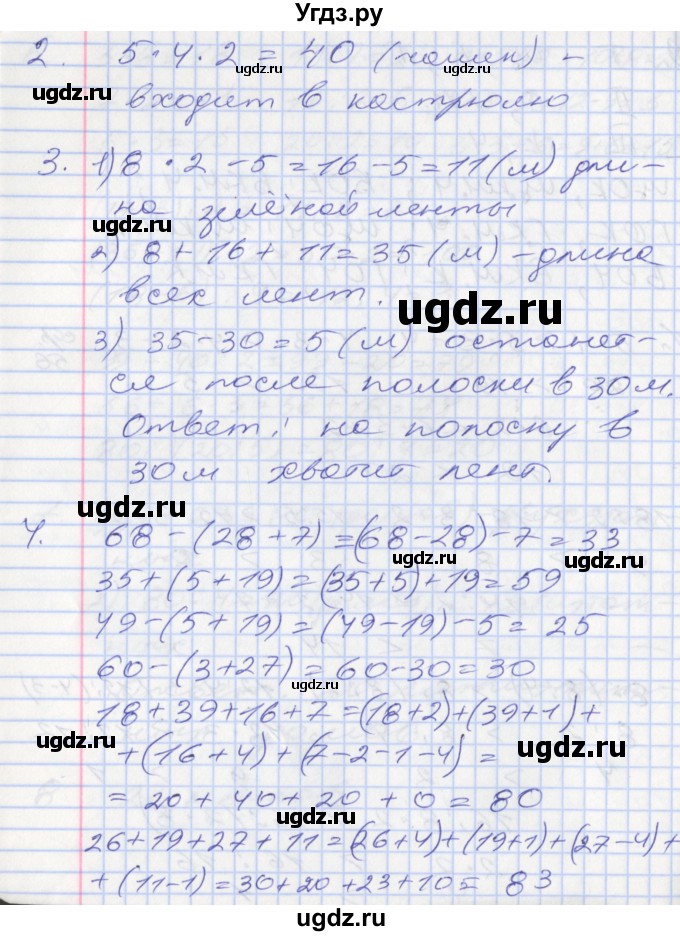 Угдз.ру
2. 5·4·2 = 40 (чашек) -
ugdz.ru
ugdz.ru
ugdz.ru
входит в кастрюлю
3. 1) 8 · 2 - 5 = 16 - 5 = 11 (м) дли-
на зелёной ленты
ugdz.ru
2) 8 + 16 + 11 = 35 (м) - длина
всех лент.
ugdz.ru
3) 35 - 30 = 5 (м) останет-
ся после полоски в 30 м.
Ответ: на полоску в
30 м хватит лент.
ugdz.ru
4. 68 - (28 + 7) = (68 - 28) - 7 = 33
ugdz.ru
ugdz.ru
35 + (5 + 19) = (35 + 5) + 19 = 59
49 - (5 + 19) = (49 - 19) - 5 = 25
60 - (3 + 27) = 60 - 30 = 30
ugdz.ru
18 + 39 + 16 + 7 = (18 + 2) + (39 + 1) +
ugdz.ru
+ (16 + 4) + (7 - 2 - 1 - 4) =
ugdz.ru
= 20 + 40 + 20 + 0 = 80
ugdz.ru
26 + 19 + 27 + 11 = (26 + 4) + (19 + 1) + (27 - 4) +
+ (11 - 1) = 30 + 20 + 23 + 10 = 83
ugdz.ru
ugdz.ru